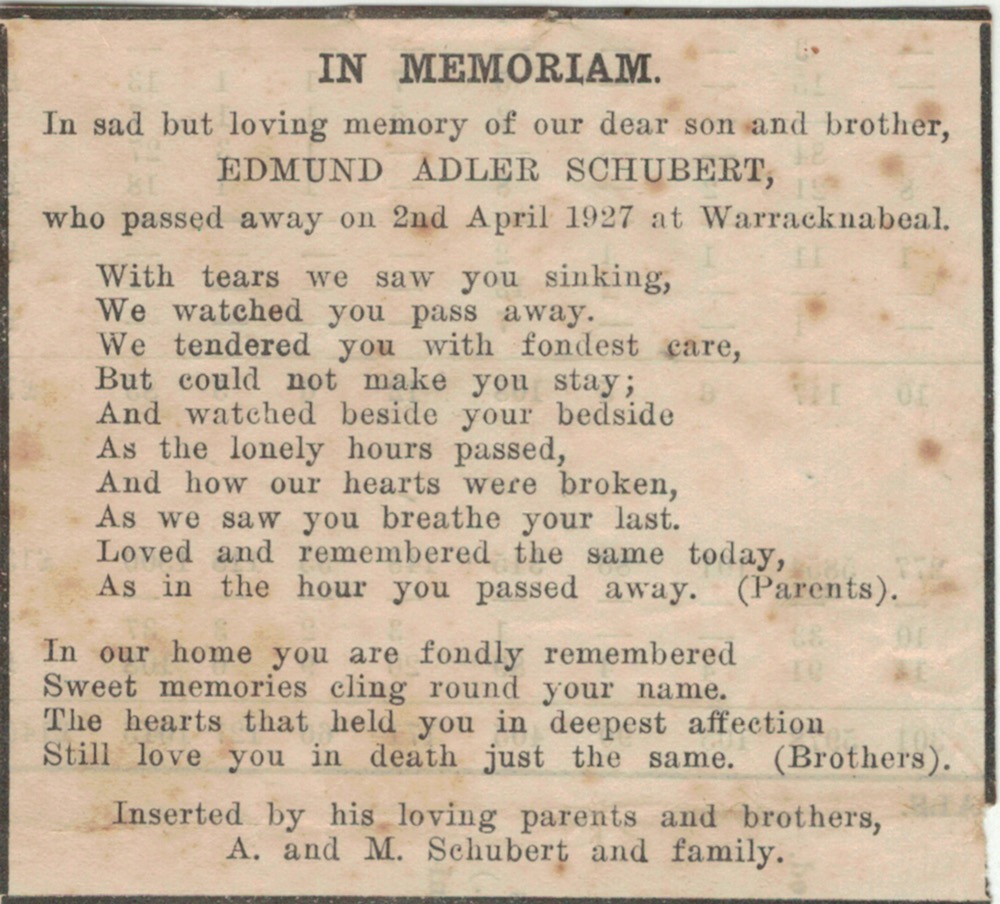 IN MEMORIAM.
In sad but loving memory of our dear son and brother,
EDMUND ADLER SCHUBERT,
who passed away on 2nd April 1927 at Warracknabeal.
With tears we saw you sinking,
We watched you pass away.
We tendered you with fondest care,
But could not make you stay;
And watched beside your bedside
As the lonely hours passed,
And how our hearts were broken,
As we saw you breathe your last.
Loved and remembered the same today,
As in the hour you passed away. (Parents).
In our home you are fondly remembered
Sweet memories cling round your name.
The hearts that held you in deepest affection
Still love you in death just the same. (Brothers).
Inserted by his loving parents and brothers,
A. and M. Schubert and family.